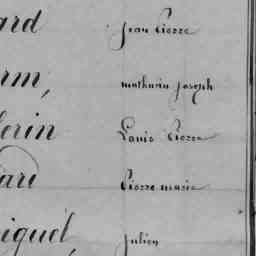 ard Jean Pierre
rm, mathurin joseph
lerin Louis Pierre
ari Pierre marie
iquel, julien